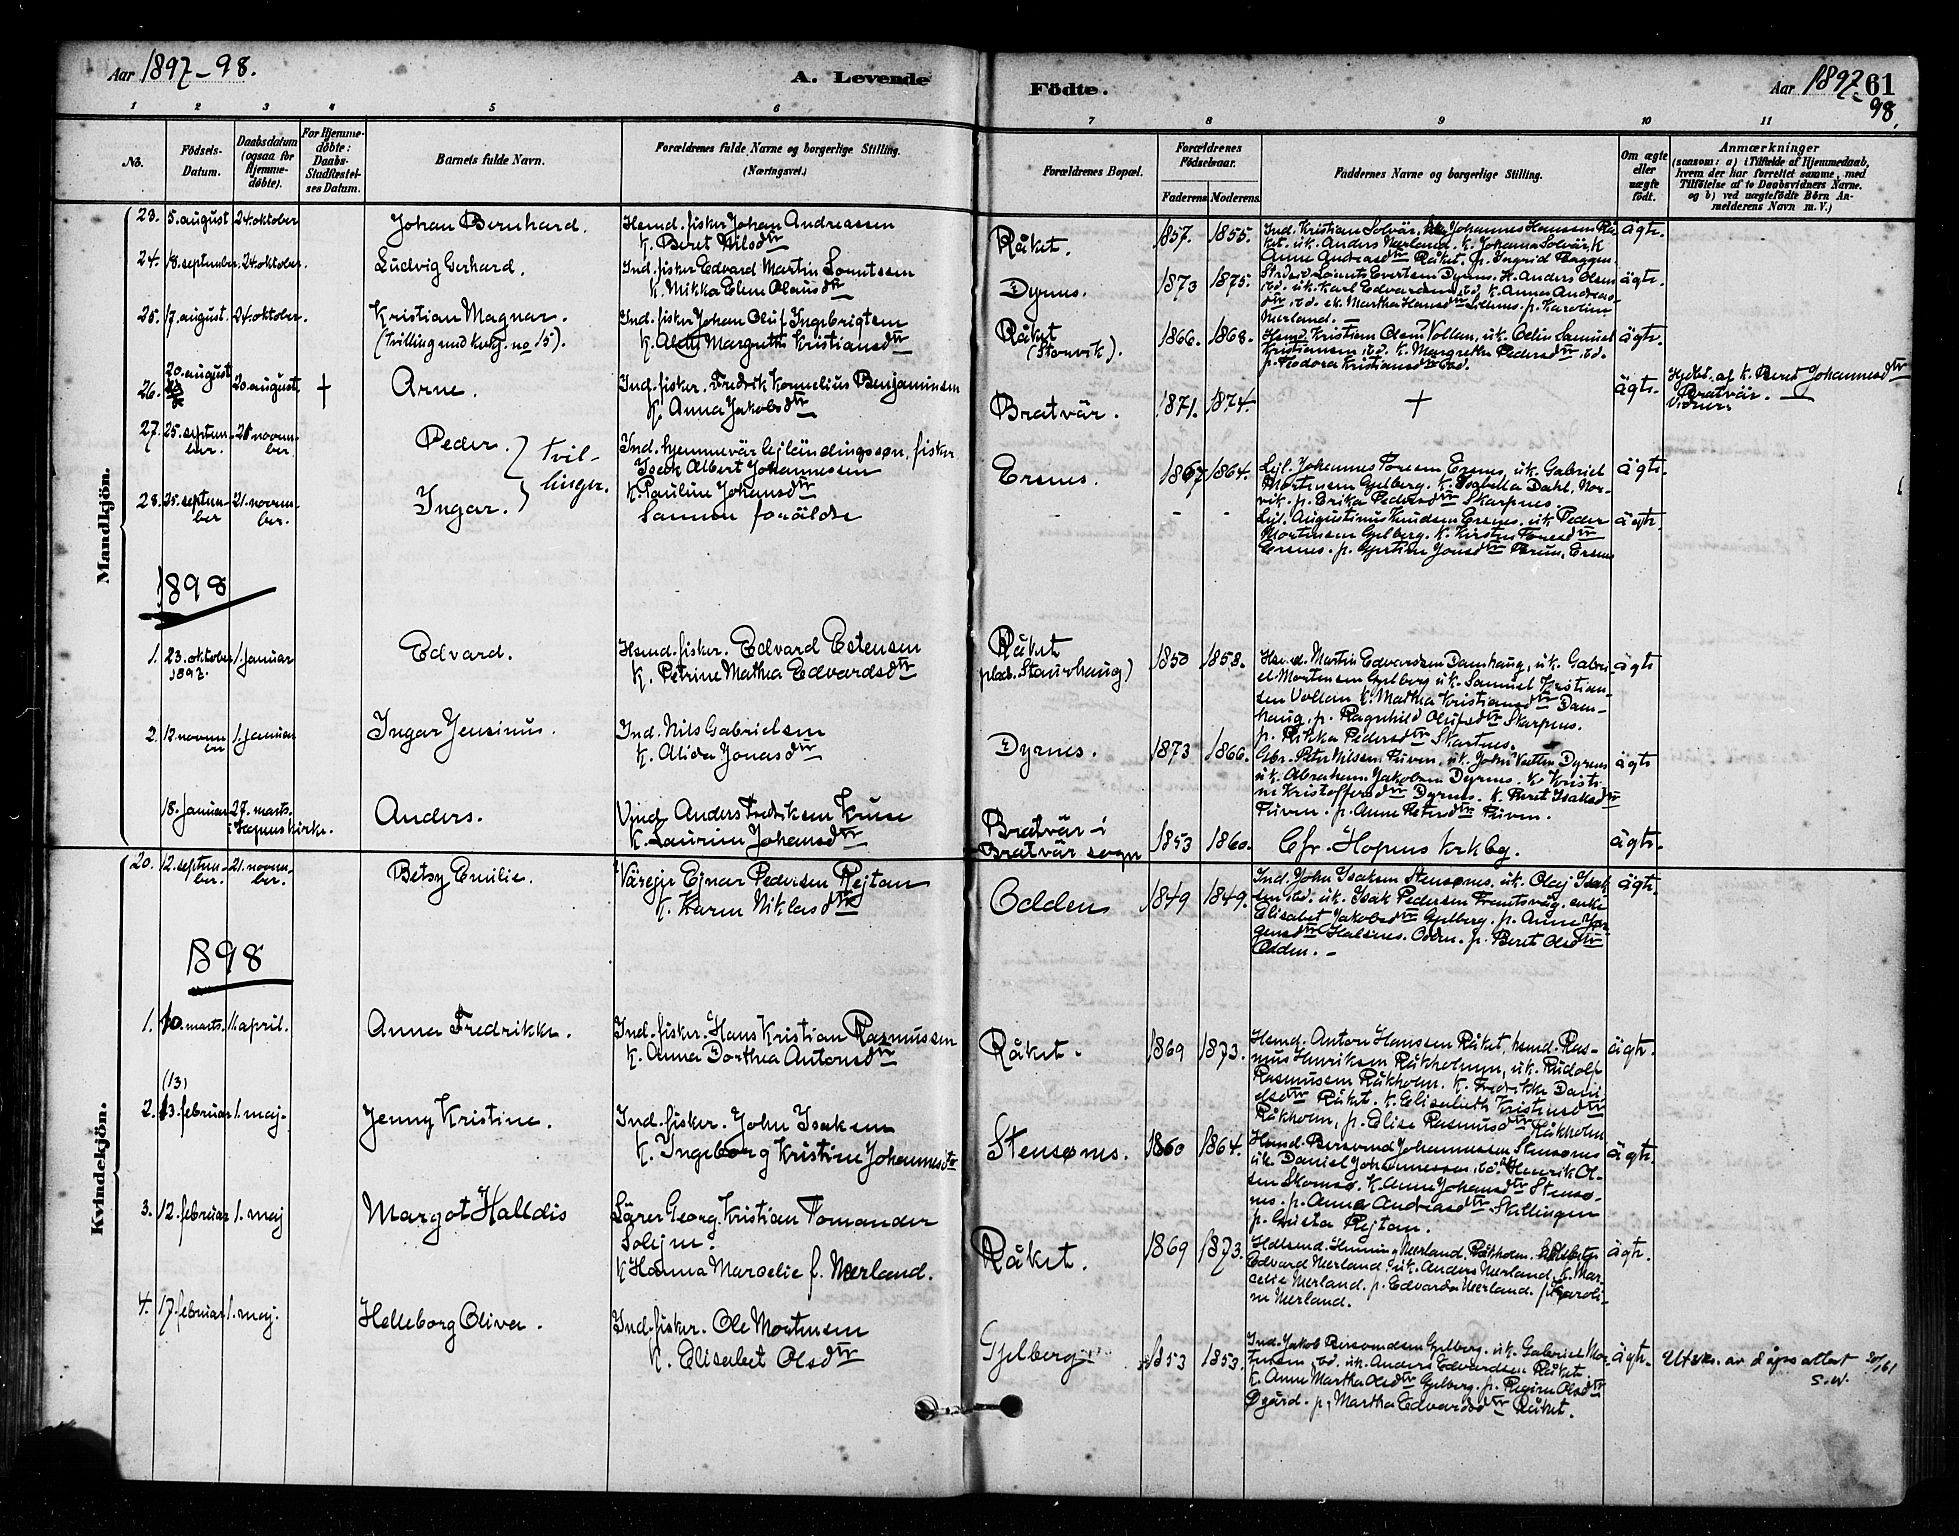 Aar 1897-98.
A. Levende
Födte.
Aar 1897-98.
61
1 2 3 4 5 6 7 8 9 10 11
No.
Födsels-Datum.
Daabsdatum (ogsaa for Hjemme-döbte).
For Hjemme-döbte: Daabs-Stadfæstel-ses Datum.
Barnets fulde Navn.
Forældrenes fulde Navne og borgerlige Stilling. (Næringsvei.)
Forældrenes Bopæl.
Forældrenes Födselsaar.
Faderens Moderens
Faddernes Navne og borgerlige Stilling.
Om ægte eller uægte födt.
Anmærkninger
(saasom: a) i Tilfælde af Hjemmedaab, hvem der har forrettet samme, med Tilföielse af to Daabsvidners Navne. og b) ved uægtefödte Børn An-melderens Navn m. V.)
Mandkjön.
23. 5. august 24 oktober
Johan Bernhard.
Hemd. fisker Johan Andreassen
K. Beret Nilsdtr
Råket. 1857. 1855.
Ind. Kristian Solvär, Johannes Hanssen Rå-
ket. uk. Anders Neerland. K. Johanna Solvär, K
Anne Andreasdtr Råket. p. Ingrid Baggen.
ägte.
24. 18. september. 24 oktober.
Ludvig Gerhard.
Ind. fisker Edvard Martin Lorntssen
K. Mikka Elene Olausdtr
Dyrnes. 1873 1875.
Lornts Evertsen Dyrnes. K. Anders Olsen
sd. uk. Karl Edvardsen, sd. K. Anna Andreas-
dtr, sd. ek. Martha Hansdtr p. Karoline
Neerland.
ägte.
25. 17. august. 24. oktober.
Kristian Magnar.
(tvilling med kvkj. no 15).
Ind. fisker Johan Oluf Ingebrigtsen
K. Margrethe Kristiansdtr
Råket (Storvik). 1866. 1868.
Hemd. Kristian Olsen Vollan, uk. Odin Samuel
Kristiansen, sd. K. Margrethe Pedersdtr, sd.
p. Teodora Kristiansdtr sd.
ägte.
26. 20. august 20. august. +
Arne.
Ind. fisker. Fredrik Kornelius Benjaminsen
K. Anna Jakobsdtr
Bratvär. 1871. 1874. +
ägte.
Hjdbt. af K. Beret Johannesdtr
Bratvär.
Vidner:
27. 25. septem- 21 novem-
ber. ber.
Peder.
tvil-
linger.
Ind. hjemmevär. lejländingssøn, fisker
Isak Albert Johannesen
K. Pauline Johansdtr
Ersnes. 1867 1864.
Lejl. Johannes Foresen Ersnes, uk. Gabriel
Mortensen Gjelberg. K. Isabella Dahl, Nor-
vik. p. Erika Pedersdtr Skarpnes.
ägte.
28. 25. septem- 21. novem-
ber ber.
Ingar.
Samme forälde
- -
Lejl. Augustinus Knudsen Ersnes. uk. Peder
Mortensen Gjelberg. K. Kirsten Foresdtr
Ersnes. p. Gjertine Jonsdtr Brun, Ersnes
ägte.
1898
1. 23. oktober 1. januar
1897.
Edvard.
Hemd. fisker. Edvard Estensen
K. Petrine Mathea Edvardsdtr
Råket
plads. Staurhaug) 1850 1858.
Hemd. Martin Edvardsen Damhaug, uk. Gabri-
el Mortensen Gjelberg uk. Samuel Kristian-
sen Vollan K. Mathea Kristiansdtr Dam-
haug. p. Ragnhild Olufsdtr Skarpnes.
p. Rikka Pedersdtr Skartnes.
ägte
2. 12 novem- 1. januar
ber
Ingar Jensinus.
Ind. Nils Gabrielsen
K. Alida Jonasdtr
Dyrnes. 1873 1866.
Gbr. Peter Nilsen Tuven. uk. John Vatten Dyrnes
uk. Abraham Jakobsen Dyrnes. K. Kristi-
ne Kristoffersdtr Dyrnes. K. Beret Isaksdtr
Tuven. p. Anne Petersdtr Tuven.
ägte
18. januar 27. marts.
i Hopens kirke.
Anders.
Vind. Anders Fredriksen Kruse
K. Laurine Johansdtr
Bratvär i
Bratvär sogn 1853 1860.
Cfr. Hopens krkbg.
ägte.
Kvindekjön.
20. 12. septem- 21. novem-
ber. ber.
Betsy Emilie.
Värejer Ejnar Pedersen Rejtan
K. Karen Niklasdtr
Odden 1849 1849.
Ind. John Isaksen Stensønes. uk. Olaj Isak-
sen sd. uk. Isak Pedersen Frantsvåg. enke
Elisabet Jakobsdtr Gjelberg. p. Anne Jør-
gensdtr Halsnes. Odden. p. Beret Olsdtr
Odden. -
ägte.
1898
1. 10. marts. 11. april.
Anna Fredrikke.
Ind. fisker. Hans Kristian Rasmussen
K. Anna Dorthea Antonsdtr
Råket. 1869 1873.
Hemd. Anton Hanssen Råket, hemd. Ras-
mus Henriksen Råkholmen, uk. Rudolf
Rasmussen Råkholm. K. Fredrikke Dani-
elsdtr Råket. K. Elisabeth Kristensdtr
Råkholm, p. Elise Rasmusdtr Råkholm
ägte.
(13)
2. 13. februar 1. maj.
Jenny Kristine.
Ind. fisker. John Isaksen
K. Ingeborg Kristine Johannesdtr
Stensønes. 1860 1864.
Hemd. Bersvend Johannessen Stensønes
uk. Daniel Johannessen, sd. Henrik Ol-
sen Skomsø. K. Anne Johansdtr Stensø-
nes. p. Anne Andreasdtr Skallingen
p. Gusta Rejtan.
ägte.
3. 12. februar 1. maj
Margot Halldis
Lärer Georg Kristian Tomander
Solejm.
K. Hanna Marcelie f. Neerland.
Råket. 1869 1873.
Henning Neerland. Råkholm.
Edvard Neerland. uk. Anders Neerland. K. Mar-
celie Neerland. p. Edvarda Neerland. p. Karoli-
ne Neerland.
ägte.
4. 17. februar 1. maj.
Helleborg Oliva.
Ind. fisker. Ole Mortensen
K. Elisabet Olsdtr
Gjelberg 1853 1853.
Ind. Jakob Bersvendsen Gjelberg. uk. Gabriel Mor-
tensen, sd. uk. Anders Edvardsen Råket
K. Anne Martha Olsdtr Gjelberg. p. Regine Olsdtr
Øgård. p. Martha Edvardsdtr Råket.
ägte.
Utskr. av dåpsattest 20/161
S.W.